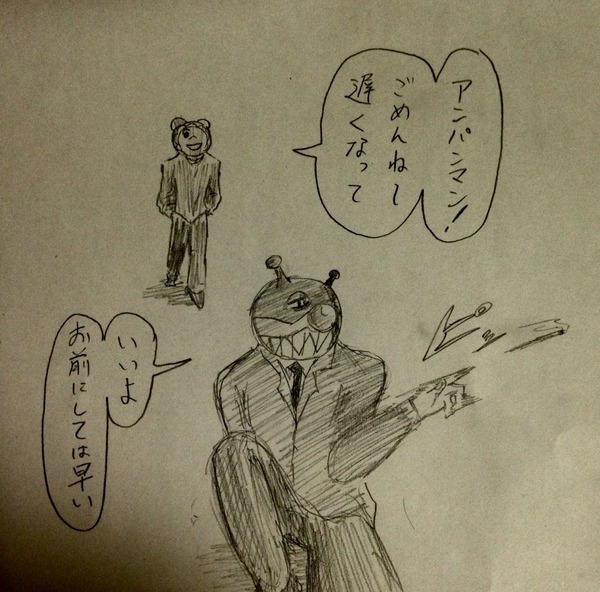 アンパンマン!
ごめんねー
遅くなって
ピッ
いいよ
お前にしては早い